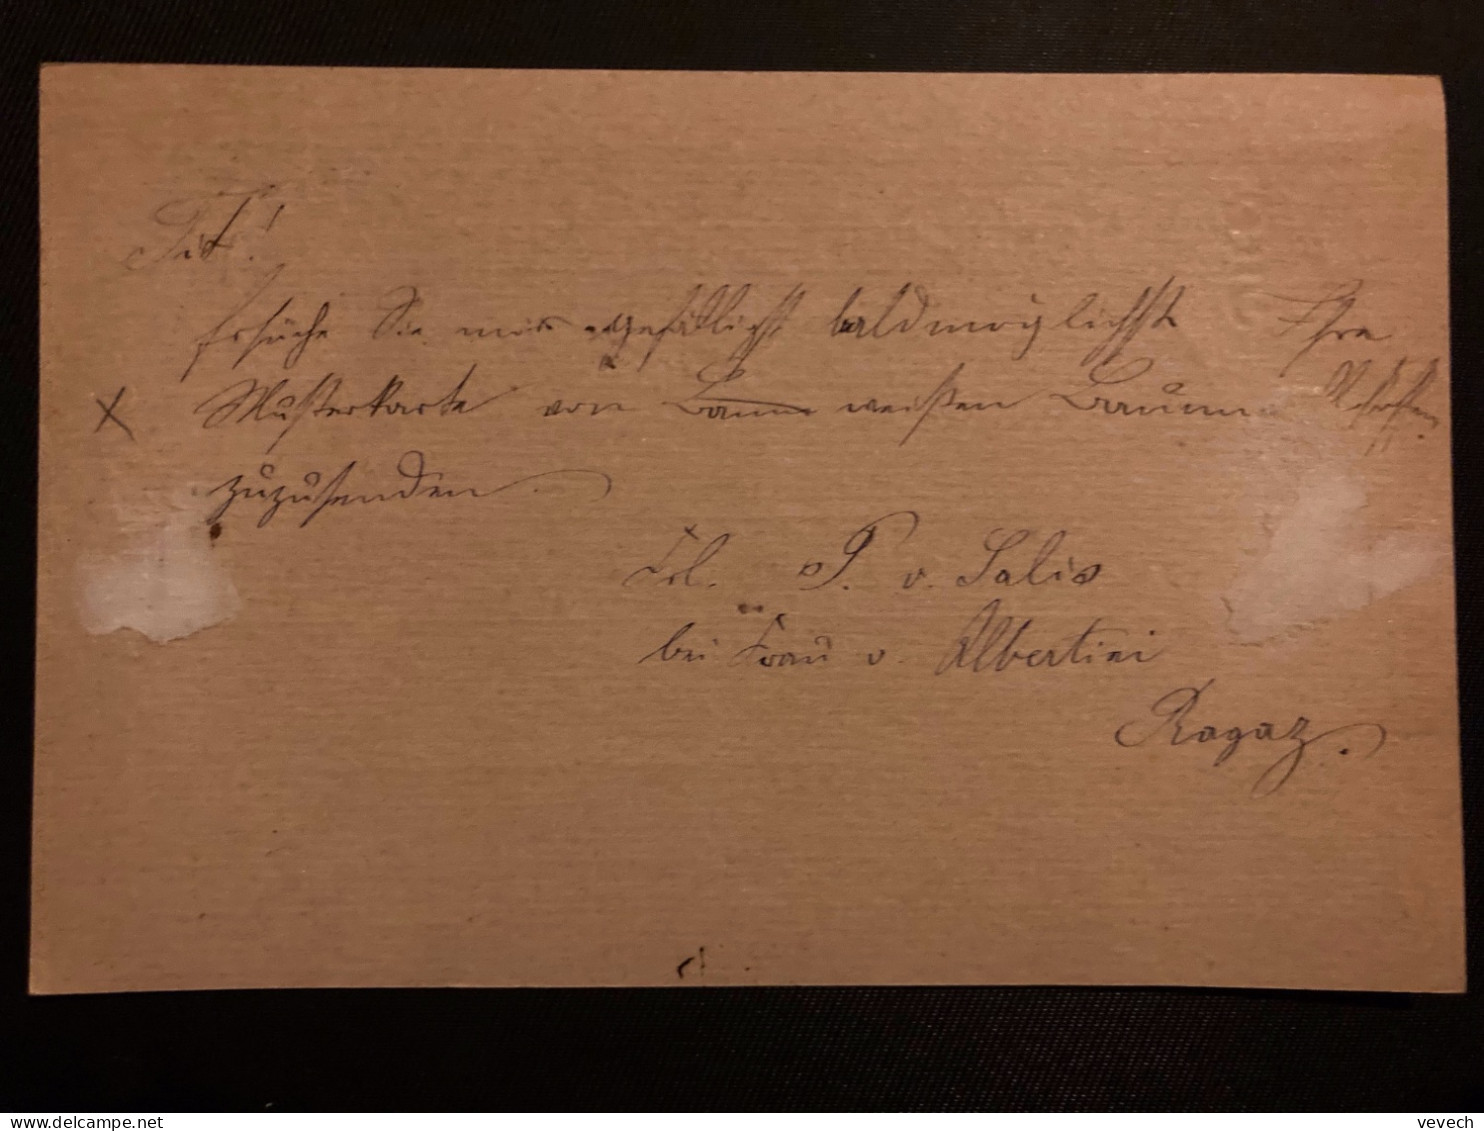 Tit!
Ersuche Sie mir gefälligst baldmöglichst Ihre
X Musterkarte von Baum weißen Baum
zuzusenden.
Frl. P. v. Salis
bei Frau v. Albertini
Ragaz.
vevech - delcampe.net